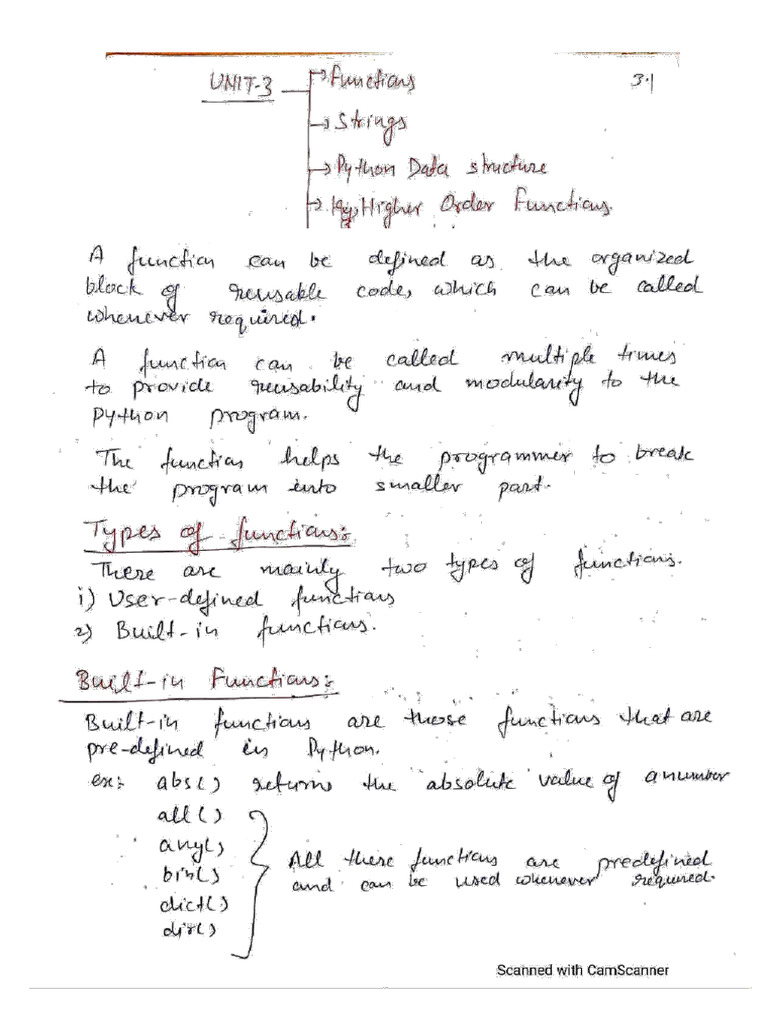 UNIT-3 → Functions 3.1
→ Strings
→ Python Data structure
→ Higher Order Functions.
A function can be defined as the organized
block of reusable code, which can be called
whenever required.
A function can be called multiple times
to provide reusability and modularity to the
Python program.
The function helps the programmer to break
the program into smaller part.
Types of functions:
There are mainly two types of functions.
1) User-defined functions
2) Built-in functions.
Built-in Functions:
Built-in functions are those functions that are
pre-defined in Python.
ex: abs() returns the absolute value of a number
all()
any()
bin()
dict()
dir()
All these functions are predefined
and can be used whenever required.
Scanned with CamScanner